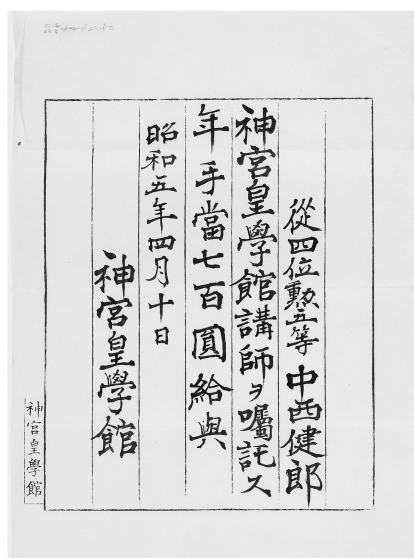 從四位勲五等 中西健郎
神宮皇學館講師ヲ囑託ス
年手當七百圓給與
昭和五年四月十日
神宮皇學館
神宮皇學館